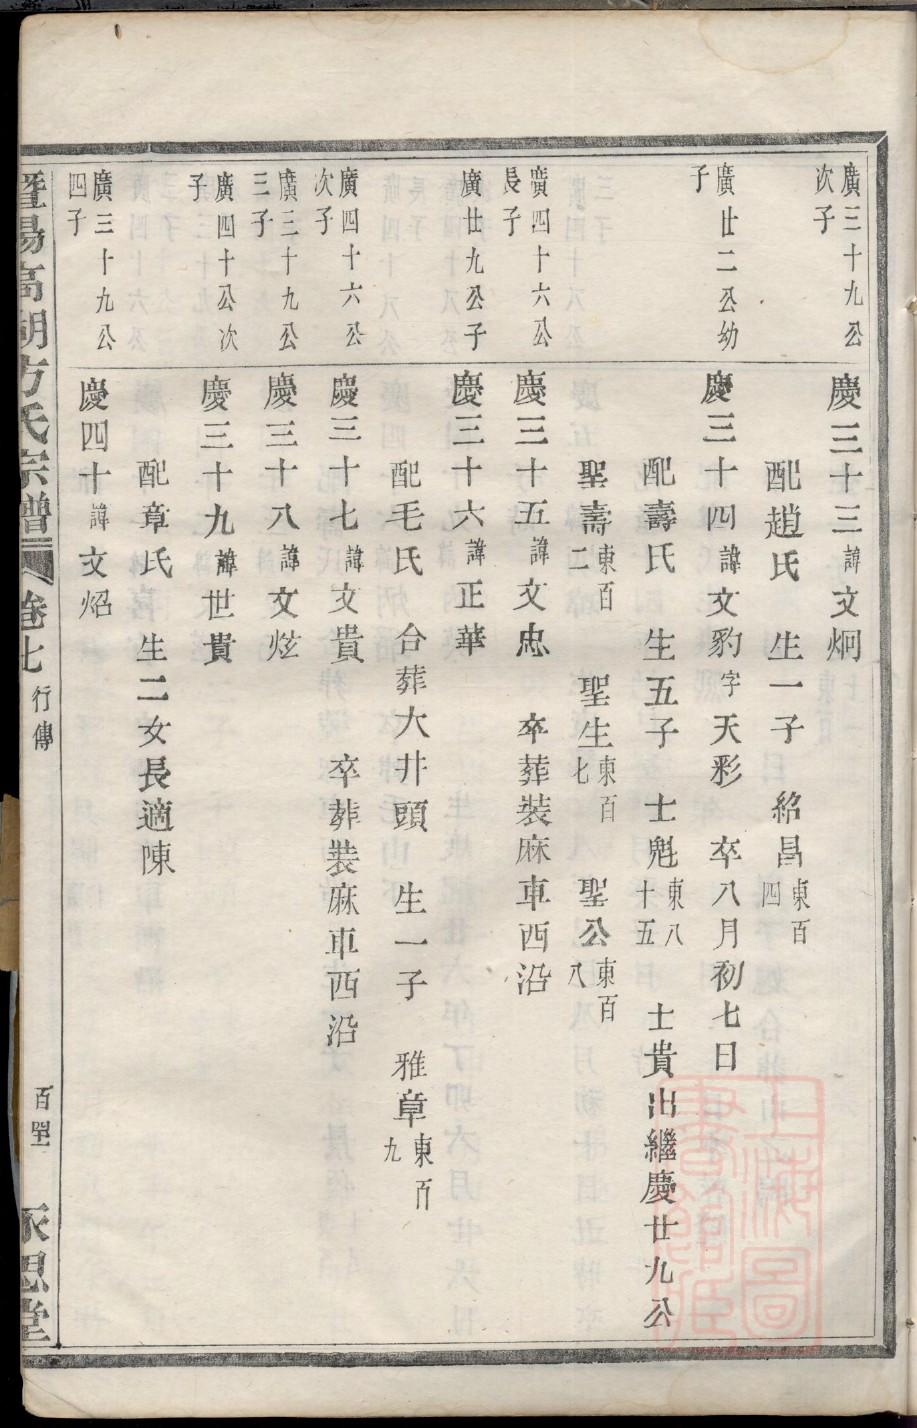 廣三十九公次子
慶三十三諱文炯
配趙氏 生一子 紹昌東百四
廣廿二公幼子
慶三十四諱文豹字天彩 卒八月初七日
配壽氏 生五子 士魁東八十五 士貴出繼慶廿九公
聖壽東百二 聖生東百七 聖公東百八
廣四十六公長子
慶三十五諱文忠 卒葬裝麻車西沿
廣廿九公子
慶三十六諱正華
配毛氏 合葬大井頭 生一子 雅章東百九
廣四十六公次子
慶三十七諱文貴 卒葬裝麻車西沿
廣三十九公三子
慶三十八諱文炫
廣四十公次子
慶三十九諱世貴
配章氏 生二女長適陳
廣三十九公四子
慶四十諱文炤
暨陽高湖方氏宗譜 卷七 行傳 百
永思堂